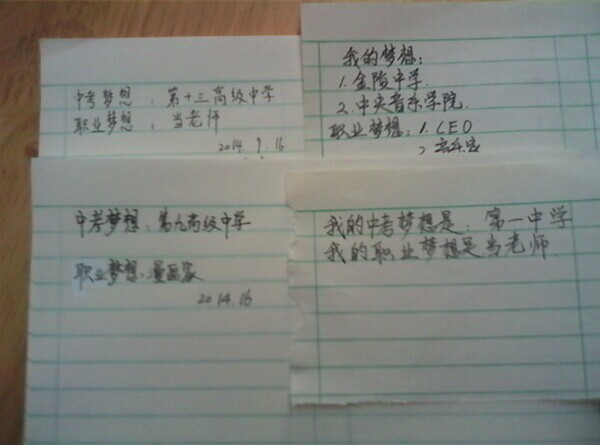 中考梦想：第十三高级中学
职业梦想：当老师
2014.9.16
我的梦想：
1.金陵中学.
2.中央音乐学院.
职业梦想：1.CEO
2.音乐家
中考梦想：第九高级中学
职业梦想：漫画家
2014.16
我的中考梦想是：第一中学
我的职业梦想是当老师